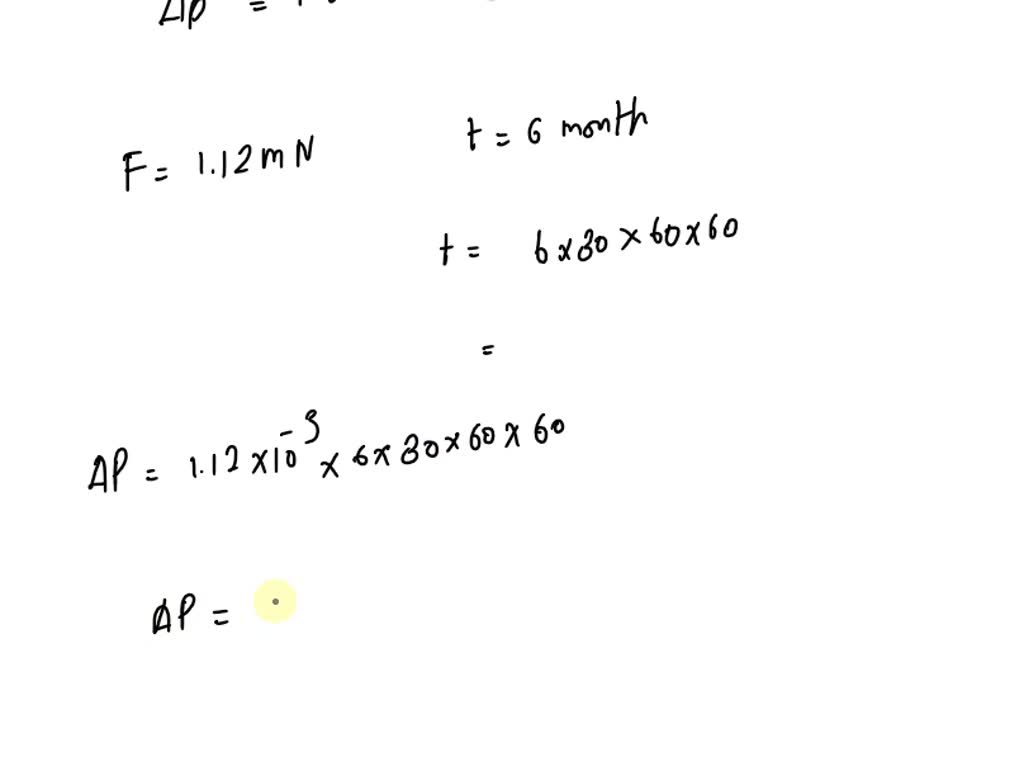 Δp =
F = 1.12 mN
t = 6 month
t = 6 × 30 × 60 × 60
=
ΔP = 1.12 × 10⁻³ × 6 × 30 × 60 × 60
ΔP =